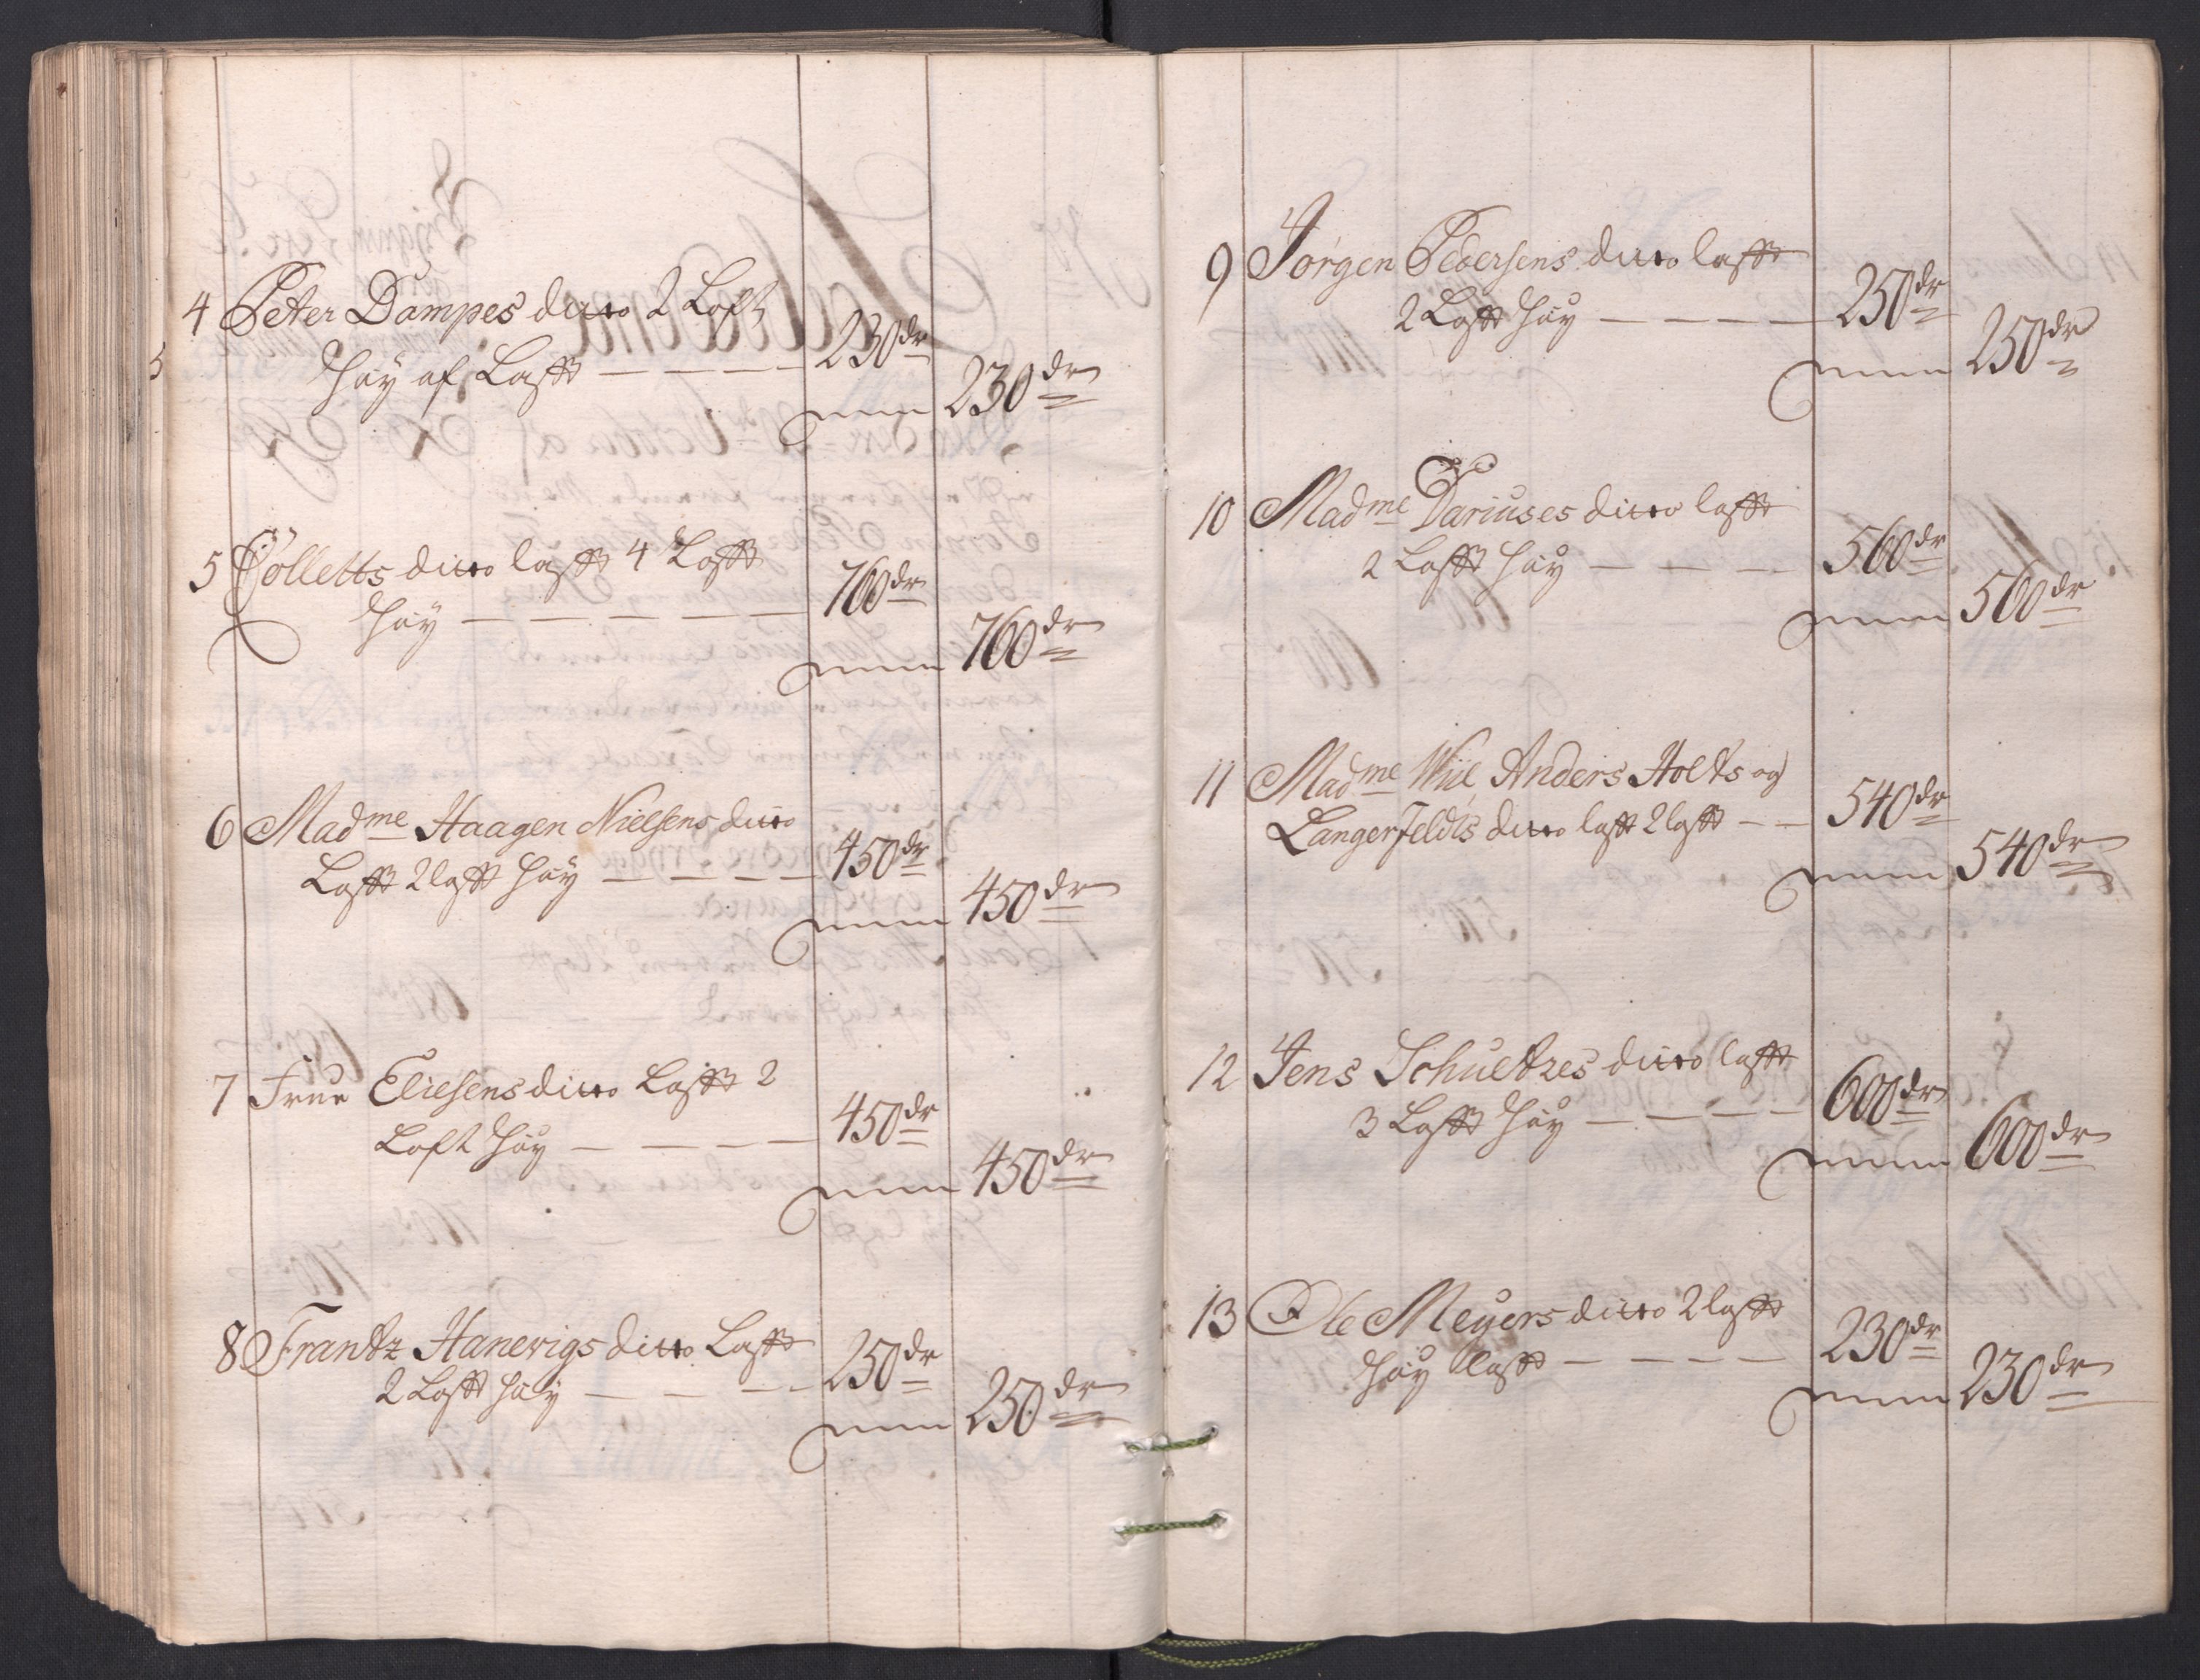 4 Peter Dampes ditto 2 Loft
høy af Lofft — — — — 230dr
230dr
5 Colletts ditto lofft 4 Lofft
høy — — — — — 760dr
760dr
6 Madme Haagen Nielsens ditto
Lofft 2 lofft høy — — — — 450dr
450dr
7 Frue Eliesens ditto Lofft 2
Loft høy — — — — 450dr
450dr
8 Frantz Hanevigs ditto Lofft
2 Lofft høy — — — 250dr
250dr
9 Jørgen Pedersens ditto lofft
2 Lofft høy — — — — 250dr
250dr
10 Madme Dariuses ditto lofft
2 Lofft høy — — — — 560dr
560dr
11 Madme Wiil Anders Holts og
Langerfeldts ditto lofft 2 lofft — — 540dr
540dr
12 Jens Schueltzes ditto lofft
3 Lofft høy — — — — 600dr
600dr
13 Ole Meyers ditto 2 lofft
høy lofft — — — — 230dr
230dr